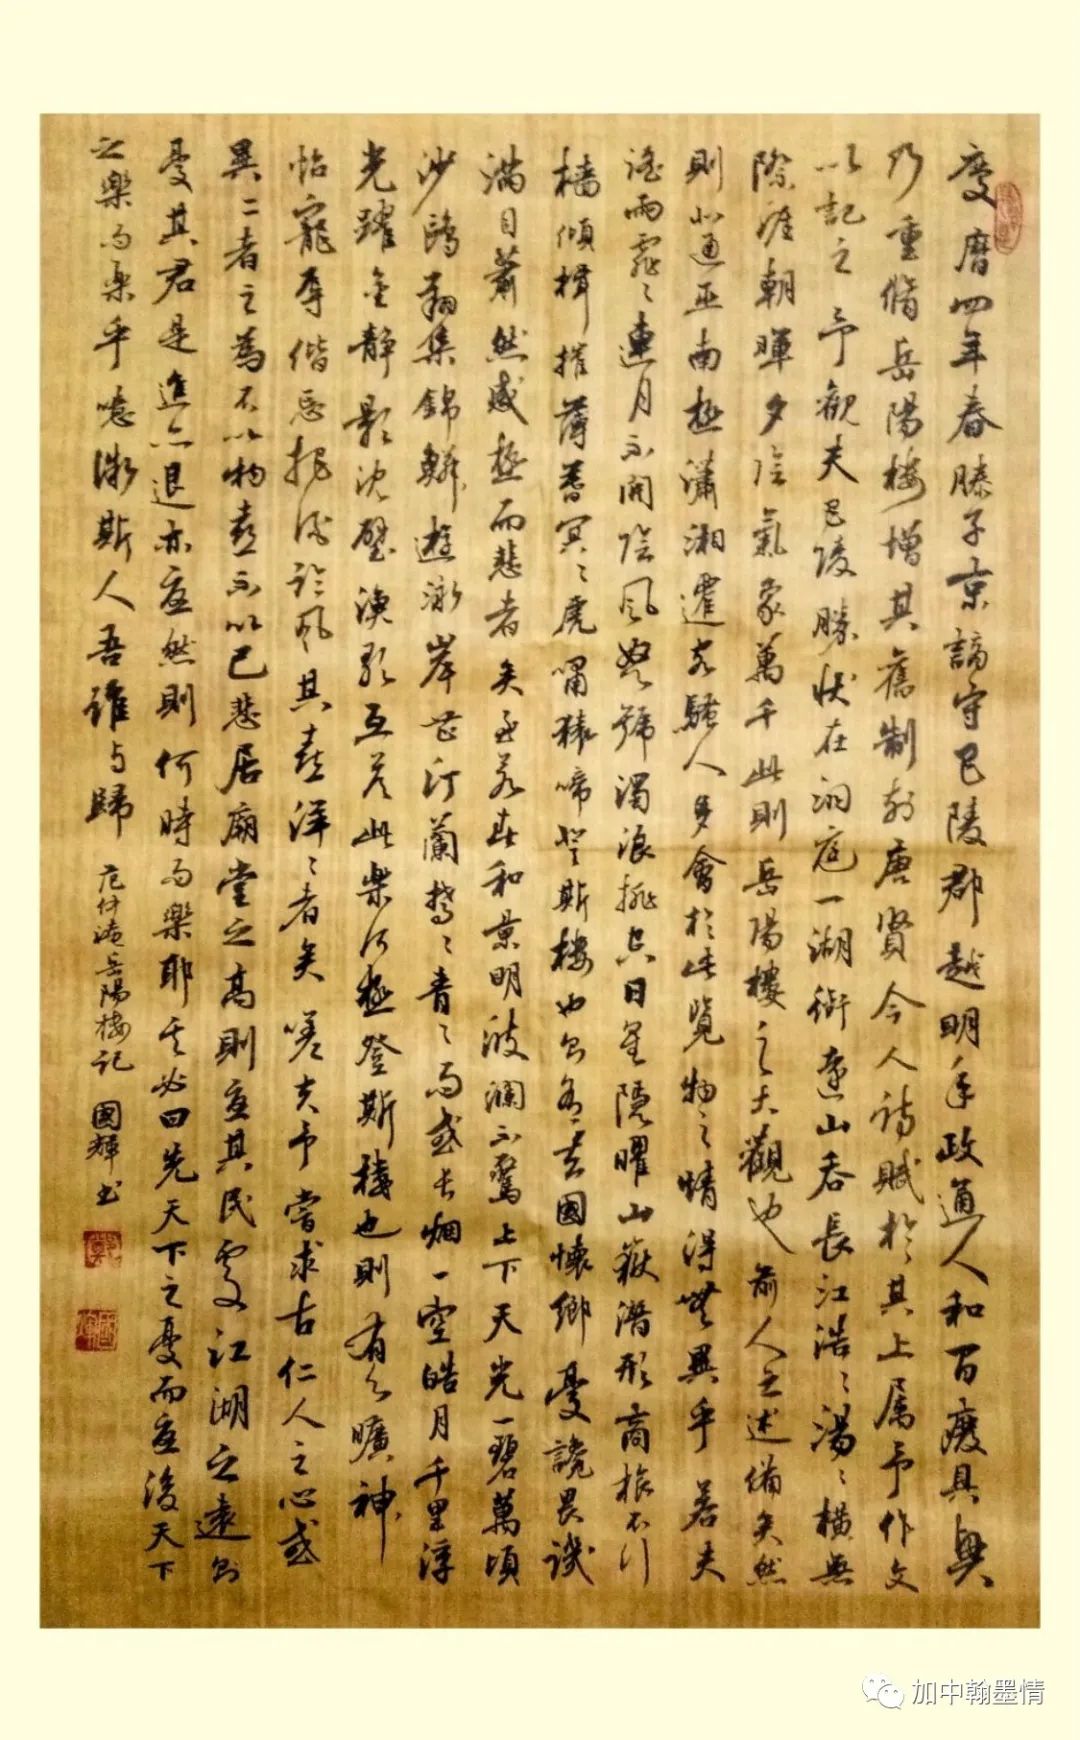 慶曆四年春滕子京謫守巴陵郡越明年政通人和百廢具興
乃重脩岳陽樓增其舊制刻唐賢今人詩賦於其上属予作文
以記之予觀夫巴陵勝狀在洞庭一湖銜遠山吞長江浩〻湯〻橫無
際涯朝暉夕陰氣象萬千此則岳陽樓之大觀也前人之述備矣然
則北通巫南極瀟湘遷客騷人多會於此覽物之情得無異乎若夫
淫雨霏〻連月不開陰風怒號濁浪排空日星隱曜山嶽潛形商旅不行
檣傾楫摧薄暮冥〻虎嘯猿啼登斯樓也則有去國懷鄉憂讒畏譏
滿目蕭然感極而悲者矣至若春和景明波瀾不驚上下天光一碧萬頃
沙鷗翔集錦鱗遊泳岸芷汀蘭郁〻青〻而或長烟一空皓月千里浮
光躍金靜影沈璧漁歌互答此樂何極登斯樓也則有心曠神
怡寵辱偕忘把酒臨風其喜洋〻者矣嗟夫予嘗求古仁人之心或
異二者之為不以物喜不以己悲居廟堂之高則憂其民處江湖之遠則
憂其君是進亦退亦憂然則何時而樂耶其必曰先天下之憂而憂後天下
之樂而樂乎噫微斯人吾誰与歸 范仲淹岳陽樓記 國輝書
加中翰墨情